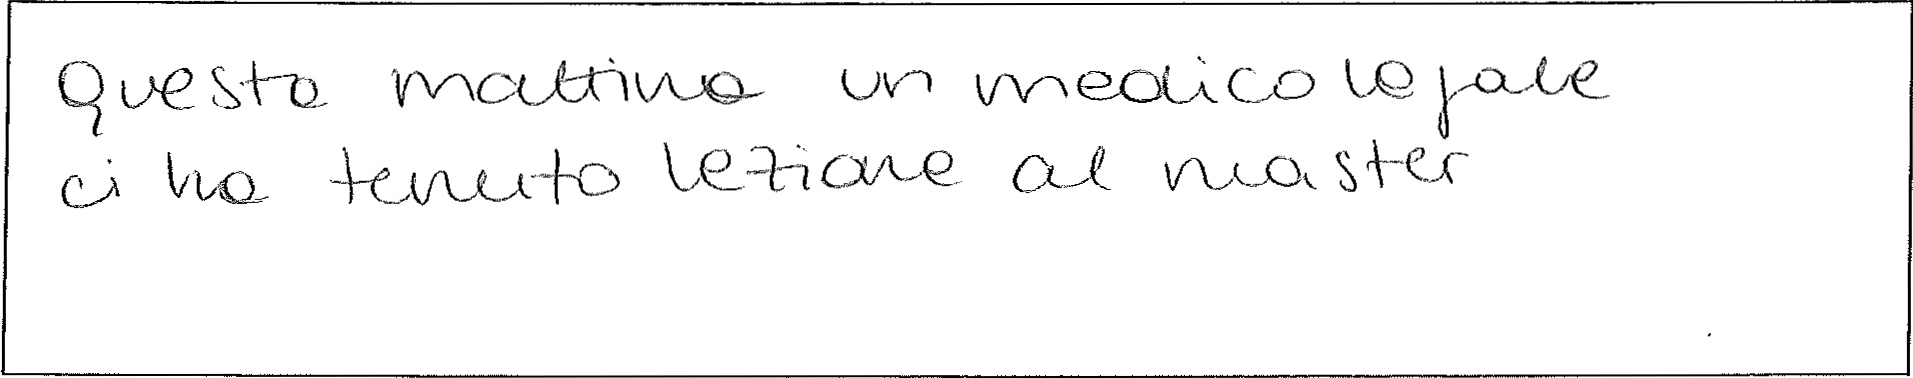 Questa mattina un medico legale
ci ha tenuto lezione al master